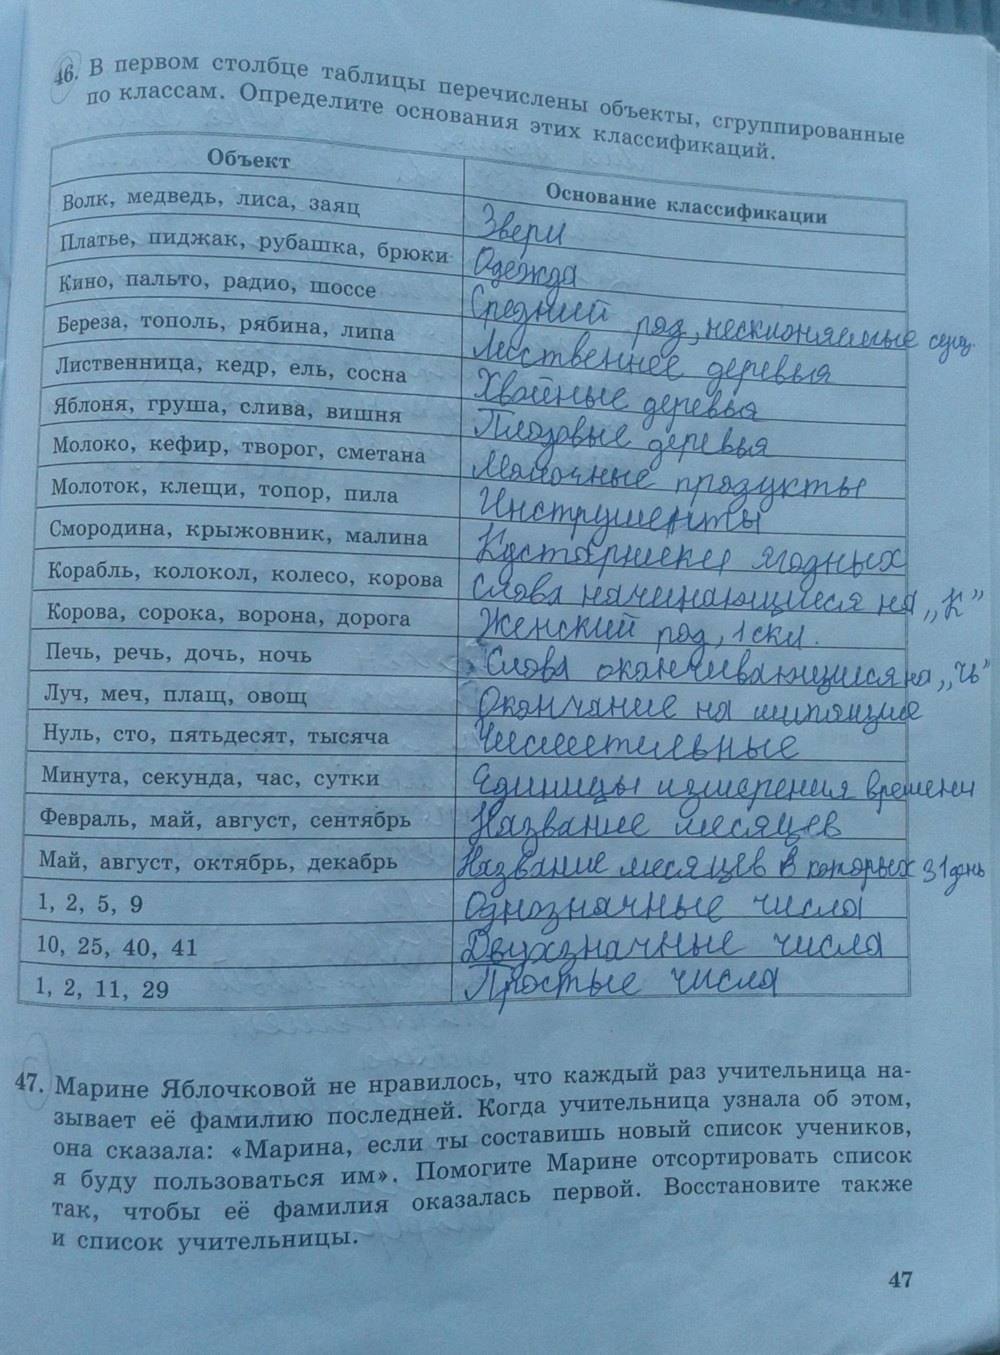 46. В первом столбце таблицы перечислены объекты, сгруппированные
по классам. Определите основания этих классификаций.
Объект Основание классификации
Волк, медведь, лиса, заяц Звери
Платье, пиджак, рубашка, брюки Одежда
Кино, пальто, радио, шоссе Средний род, несклоняемые сущ.
Береза, тополь, рябина, липа Лиственнее деревья
Лиственница, кедр, ель, сосна Хвойные деревья
Яблоня, груша, слива, вишня Плодовые деревья
Молоко, кефир, творог, сметана Молочные продукты
Молоток, клещи, топор, пила Инструменты
Смородина, крыжовник, малина Кустарники ягодных
Корабль, колокол, колесо, корова Слова начинающиеся на „К”
Корова, сорока, ворона, дорога Женский род, 1 скл.
Печь, речь, дочь, ночь Слова оканчивающиеся на „чь”
Луч, меч, плащ, овощ Окончание на шипящие
Нуль, сто, пятьдесят, тысяча Числительные
Минута, секунда, час, сутки Единицы измерения времени
Февраль, май, август, сентябрь Название месяцев
Май, август, октябрь, декабрь Название месяцев в которых 31 день
1, 2, 5, 9 Однозначные числа
10, 25, 40, 41 Двухзначные числа
1, 2, 11, 29 Простые числа
47. Марине Яблочковой не нравилось, что каждый раз учительница на-
зывает её фамилию последней. Когда учительница узнала об этом,
она сказала: «Марина, если ты составишь новый список учеников,
я буду пользоваться им». Помогите Марине отсортировать список
так, чтобы её фамилия оказалась первой. Восстановите также
и список учительницы.
47